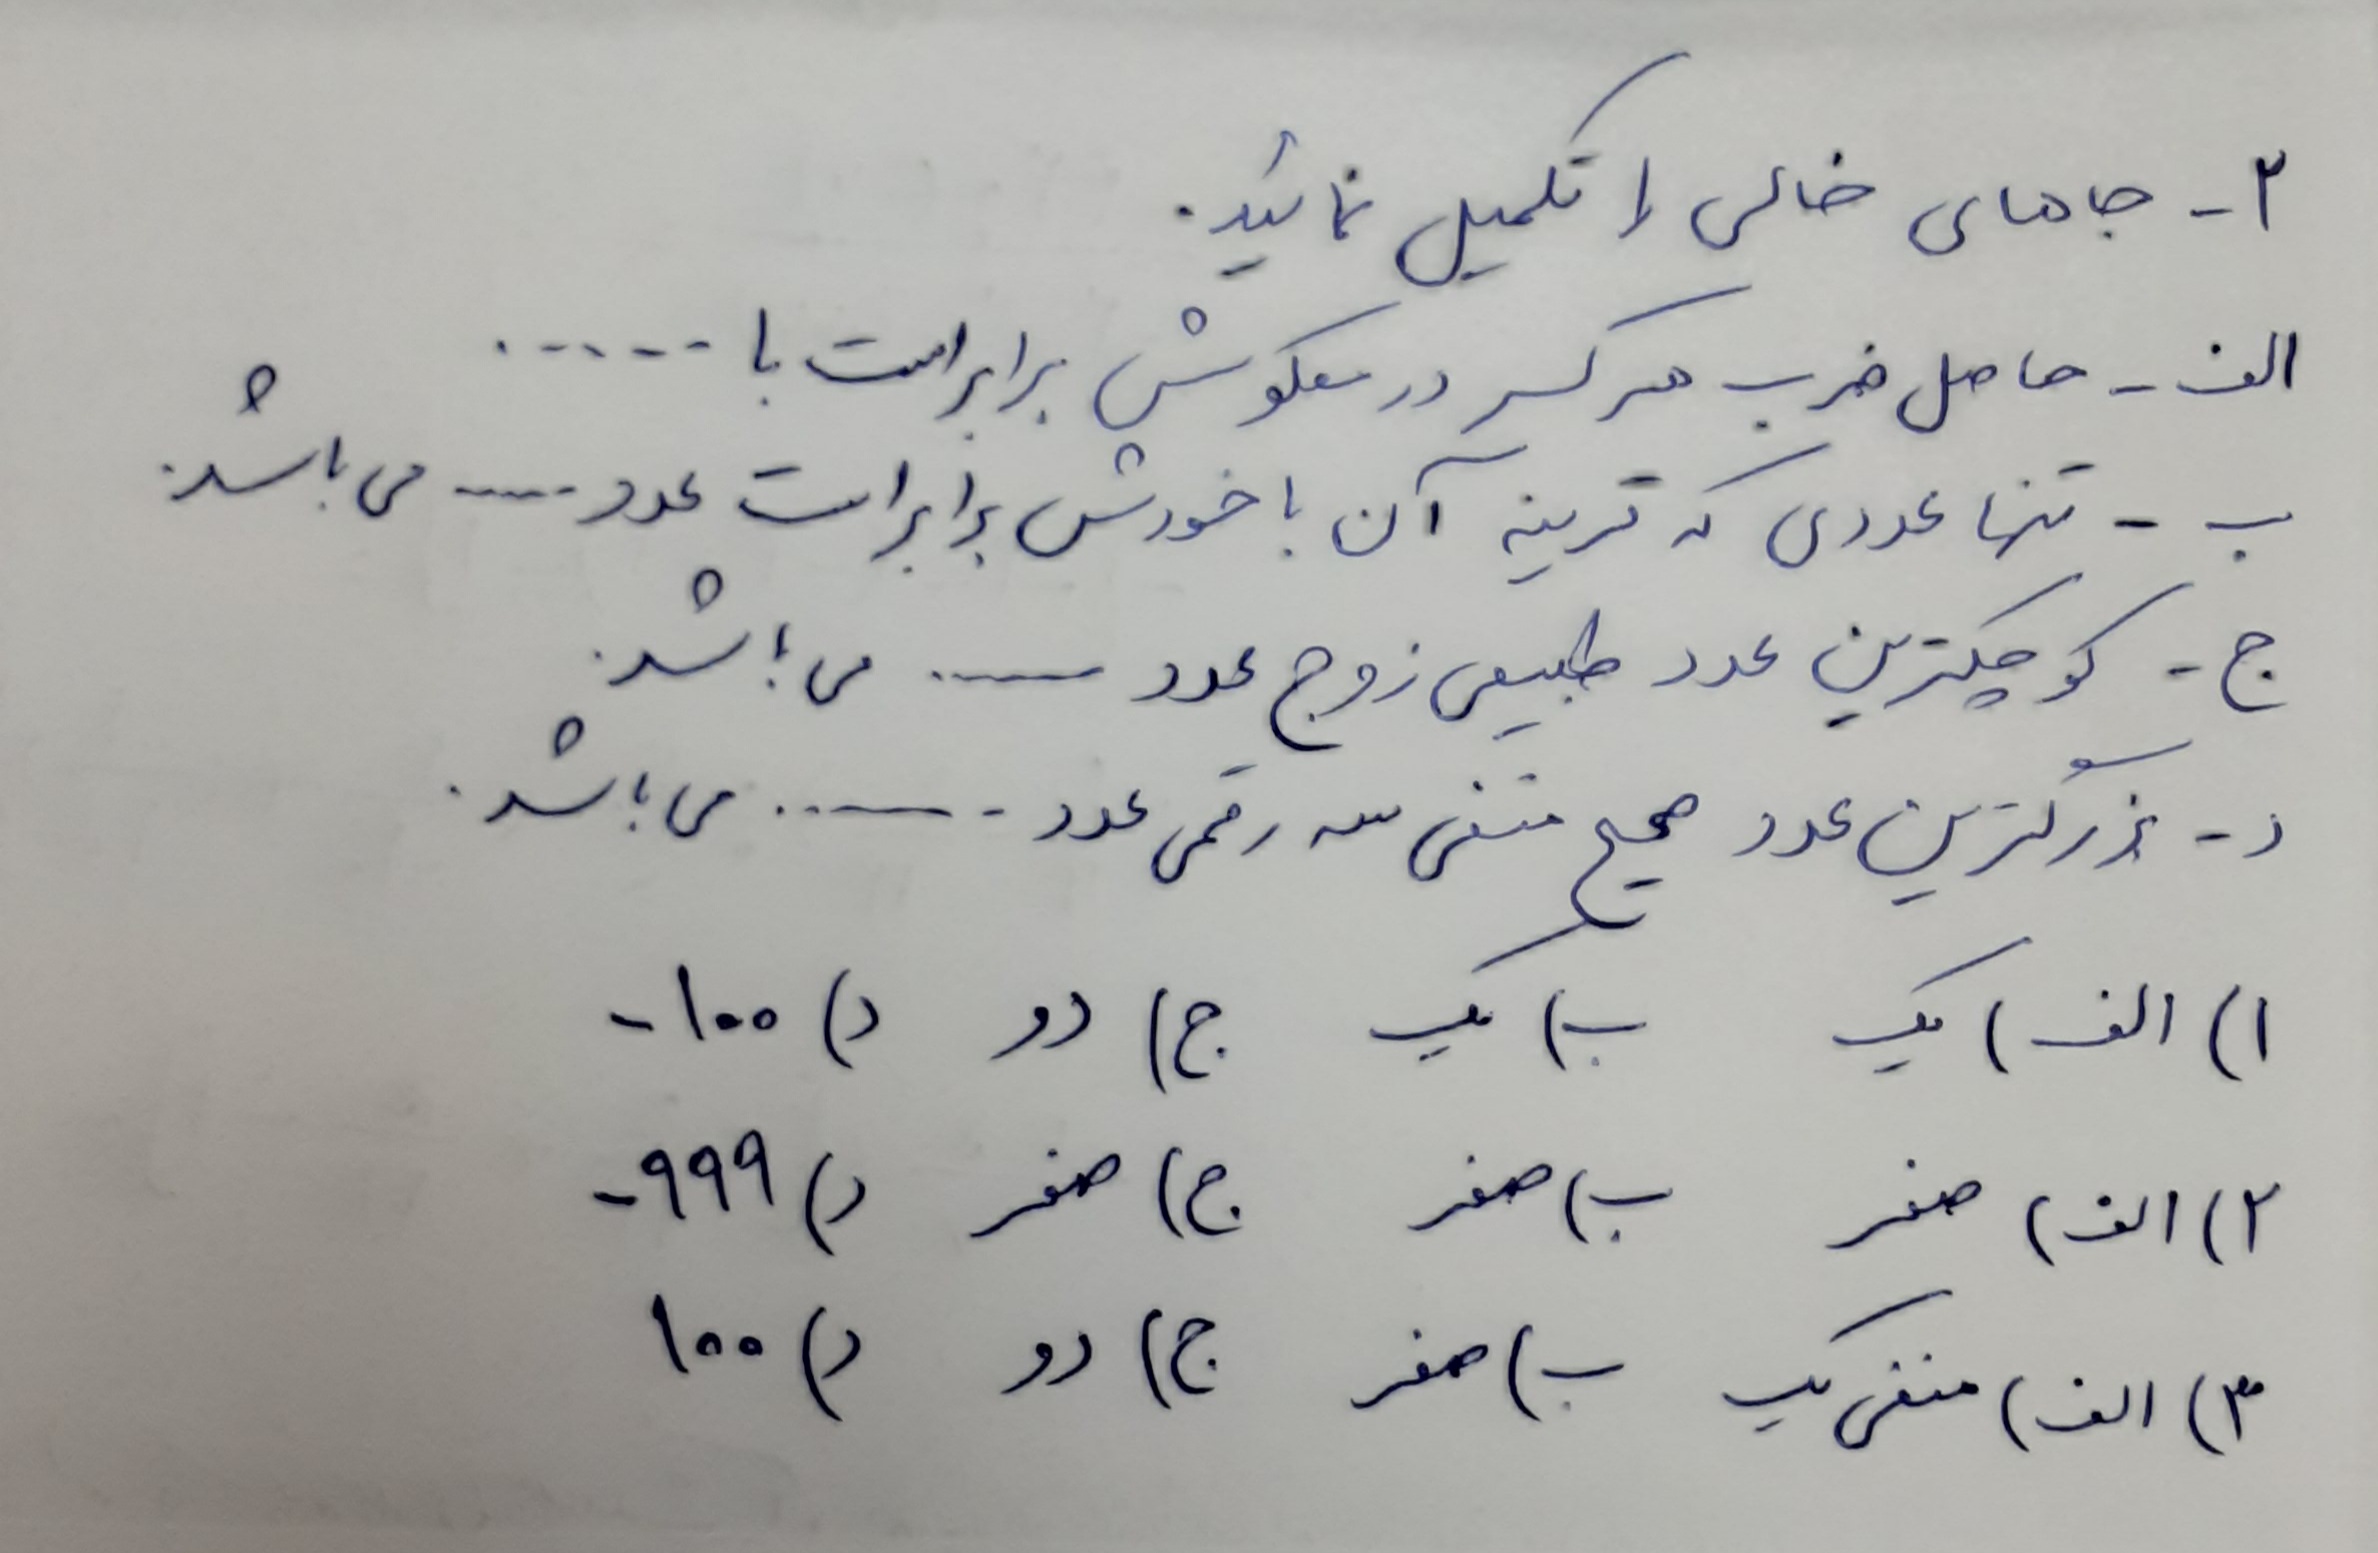 ۲- جاهای خالی را تکمیل نمائید.
الف- حاصل ضرب هر کسر در معکوسش برابر است با ......
ب- تنها عددی که قرینه آن با خودش برابر است عدد ...... می باشد.
ج- کوچکترین عدد طبیعی زوج عدد ...... می باشد.
د- بزرگترین عدد صحیح منفی سه رقمی عدد ...... می باشد.
۱) الف) یک ب) یک ج) دو د) ۱۰۰-
۲) الف) صفر ب) صفر ج) صفر د) ۹۹۹-
۳) الف) منفی یک ب) صفر ج) دو د) ۱۰۰